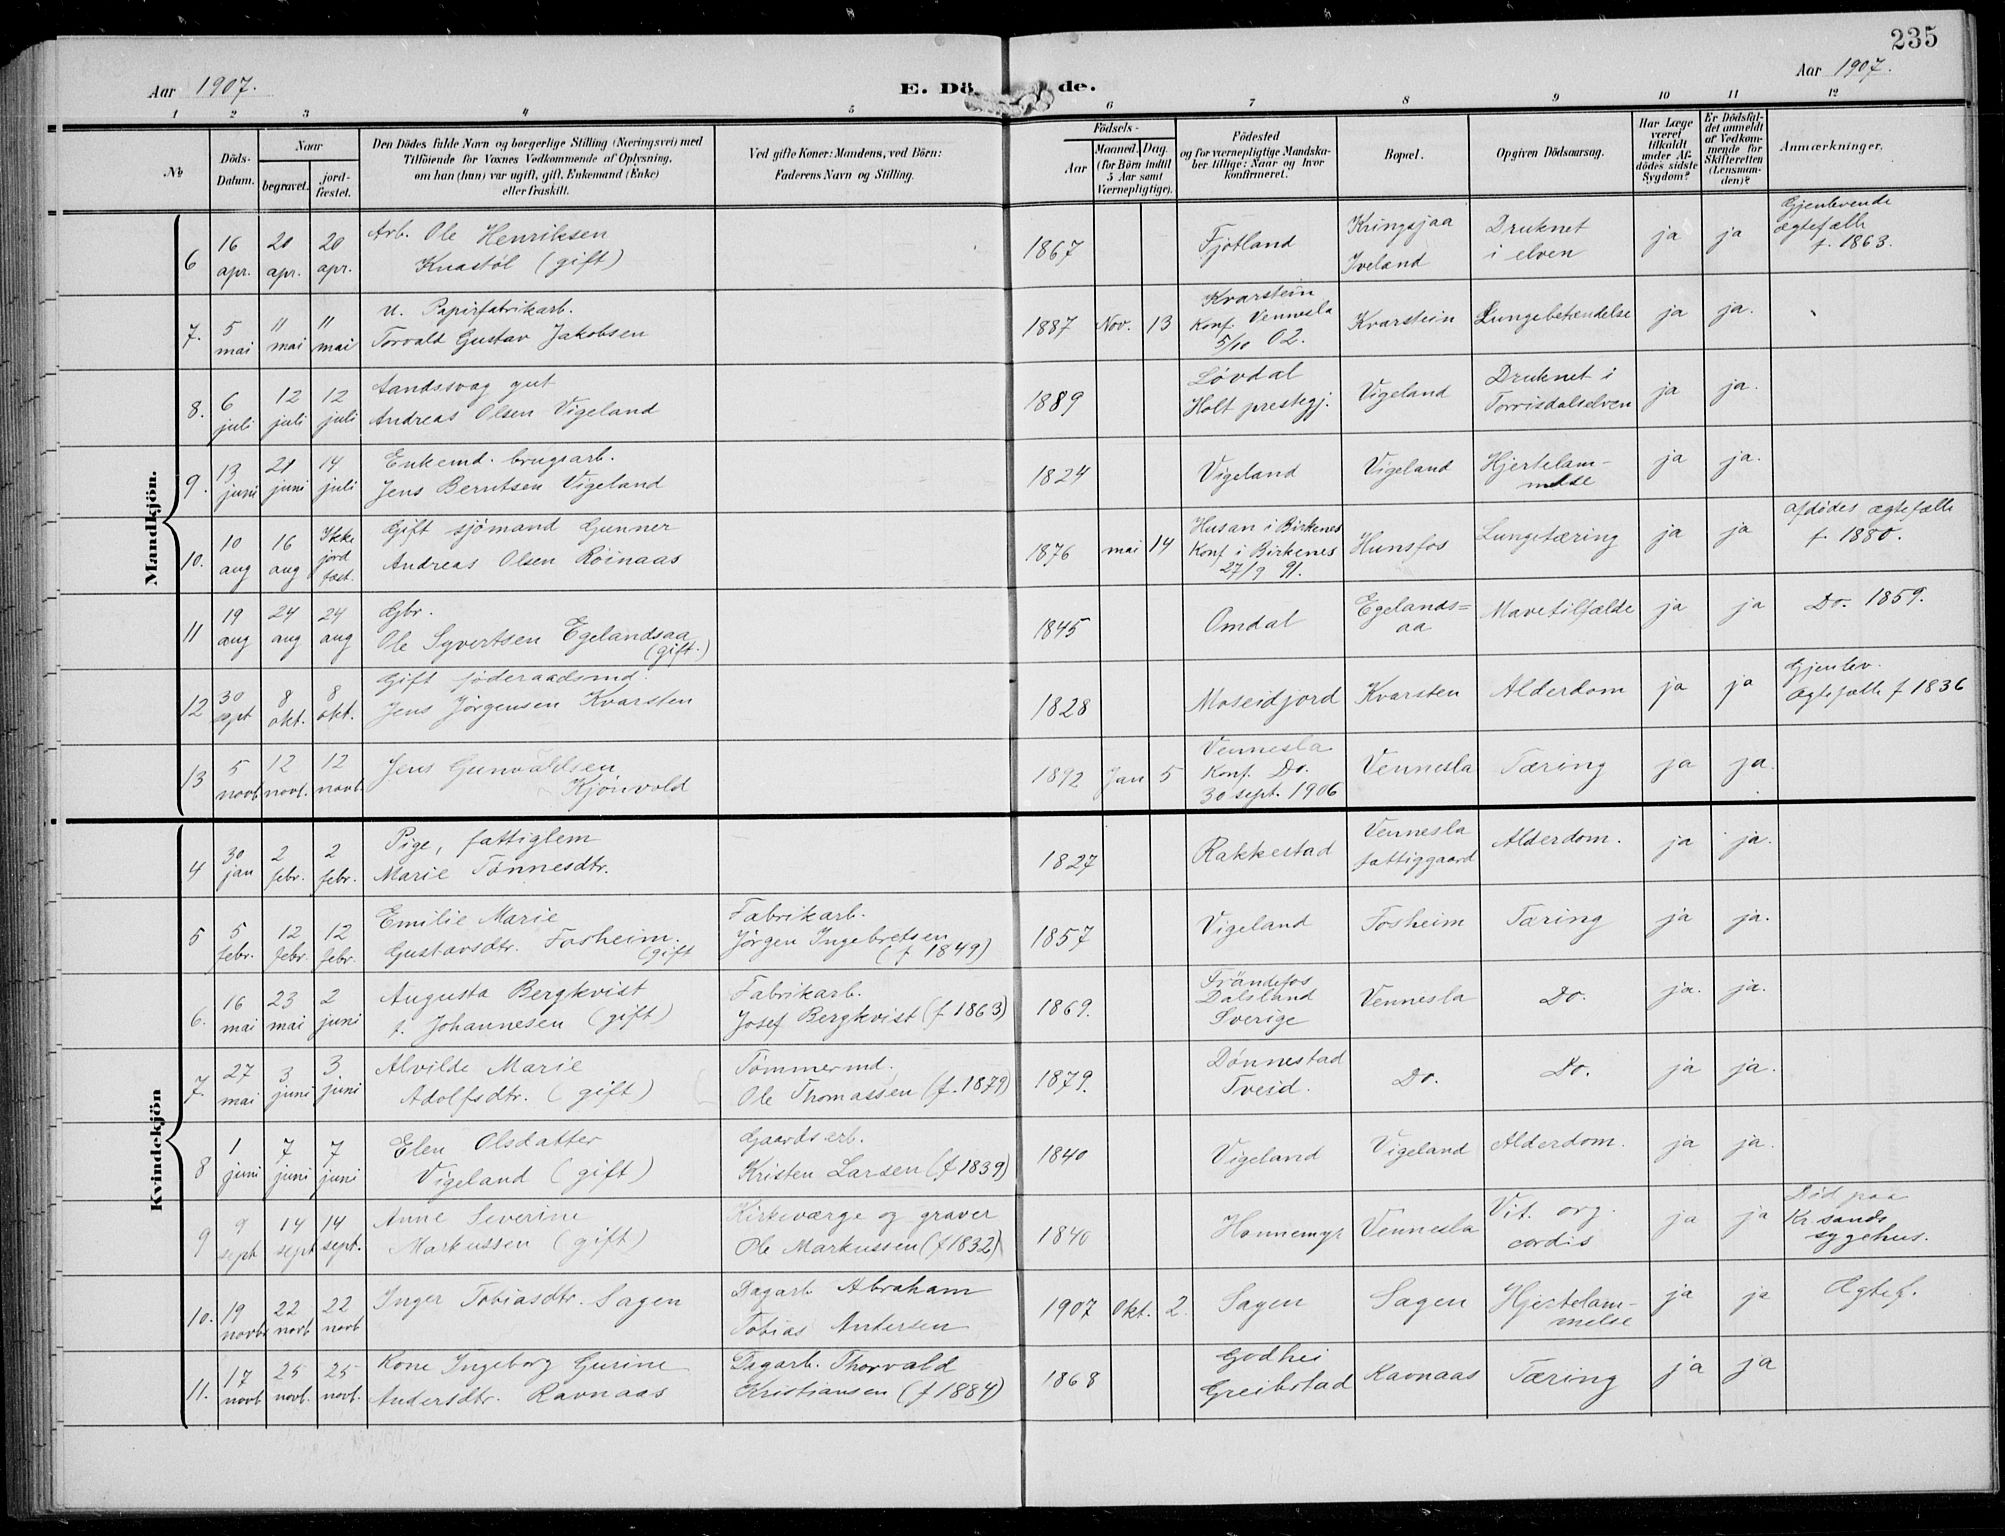 235
Aar 1907.
E. Dö de.
Aar 1907.
1 2 3 4 5 6 7 8 9 10 11 12
№
Döds-Datum.
Naar
begravet.
jord-fæstet.
Den Dödes fulde Navn og borgerlige Stilling (Næringsvei) med
Tilföiende for Voxnes Vedkommende af Oplysning,
om han (hun) var ugift, gift, Enkemand (Enke)
eller fraskilt.
Ved gifte Koner: Mandens, ved Börn:
Faderens Navn og Stilling.
Födsels-
Aar
Maaned. Dag.
(for Börn indtil
5 Aar samt
Værnepligtige).
Födested
og for værnepligtige Mandska-
ber tillige: Naar og hvor
konfirmeret.
Bopæl.
Opgiven Dödsaarsag.
Har Læge
været
tilkaldt
under Af-
dödes sidste
Sygdom?
Er Dödsfal-
det anmeldt
af Vedkom-
mende for
Skifteretten
(Lensman-
den)?
Anmærkninger.
Mandkjön.
6 16 apr. 20 apr. 20 apr. Arb. Ole Henriksen Knastöl (gift) 1867 Fjotland Kringsjaa Iveland Druknet i elven ja ja Gjenlevende ægtefælle f. 1863.
7. 5 mai " mai " mai u. Papirfabrikarb. Torvald Gustav Jakobsen 1887 Nov. 13 Kvarstein Konf. Vennesla 5/10 02. Kvarstein Lungebetændelse ja ja.
8. 6 juli 12 juli 12 juli Aandssvag gut Andreas Olsen Vigeland 1889 Løvdal Holt prestegj. Vigeland Druknet i Torrisdalselven ja ja.
9. 13 juni 21 juni 14 juli Enkemd. brugsarb. Jens Berntsen Vigeland 1824 Vigeland Vigeland Hjertelam-melse ja ja.
10. 10 aug 16 aug Ikke jord fæst. Gift sjömand Gunner Andreas Olsen Röinaas 1876 mai 14 Husan i Birkenes Konf i Birkenes 27/9 91. Hunsfos Lungetæring ja ja afdödes ægtefælle f. 1880.
11 19 aug 24 aug 24 aug Gbr. Ole Syvertsen Egelandsaa (gift.) 1845 Omdal Egelands=aa Mavetilfælde ja ja Do. 1859.
12 30 spt 8 okt. 8 okt. Gift föderaadsmd. Jens Jörgensen Kvarsten 1828 Moseidjord Kvarsten Alderdom ja ja Gjenlev. ægtefælle f 1836
13 5 novb 12 novb. 12 novb. Jens Gunvaldsen Kjönvold 1892 Jan 5 Vennesla Konf. Do. 30 sept. 1906 Vennesla Tæring ja ja.
Kvindekjön
4 30 jan 2 febr. 2 febr. Pige, fattiglem Marie Tönnesdtr. 1827 Rakkestad Vennesla fattiggaard Alderdom. ja ja.
5 5 febr. 12 febr. 12 febr. Emilie Marie Gustavsdtr. Fosheim. (gift Fabrikarb. Jörgen Ingebretsen (f 1849) 1857 Vigeland Fosheim Tæring ja ja.
6. 16 mai 23 mai 2 juni Augusta Bergkvist f. Johannesen (gift) Fabrikarb. Josef Bergkvist (f 1863) 1869. Frändefos Dalsland Sverige Vennesla Do. ja. ja.
7. 27 mai 3 juni 3 juni Alvilde Marie Adolfsdtr. (gift) Tömmermd. Ole Thomassen (f. 1879) 1879. Dönnestad Tveid. Do. Do. ja ja.
8 1 juni 7 juni 7 juni Elen Olsdatter Vigeland (gift) Gaardsarb. Kristen Larsen (f 1839) 1840 Vigeland Vigeland Alderdom. ja ja.
9 9 sept 14 sept 14 sept. Anne Severine Markussen (gift) Kirkeværge og graver Ole Markussen (f 1832) 1840 Honnemyr Vennesla Vit. org. cordis ja ja Död paa Kr.sands sygehus.
10. 19 novb 22 novb 22 novb Inger Tobiasdtr. Sagen Dagarb. Abraham Tobias Andersen 1907 Okt. 2. Sagen Sagen Hjertelam-melse ja ja Ægtef.
11. 17 novb 25 novb. 25 novb. Kone Ingeborg Gurine Andersdtr. Ravnaas Dagarb. Thorvald Kristiansen (f 1884) 1868 Godhei Greibstad Ravnaas Tæring ja ja